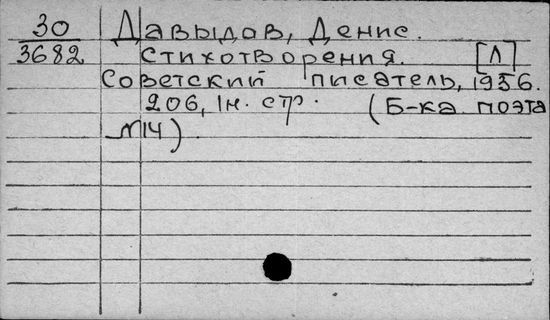 30 Давыдов, Денис.
3682 Стихотворения. [Л]
Советский писатель, 1956.
206, 1н. стр. (Б-ка поэта
№14)